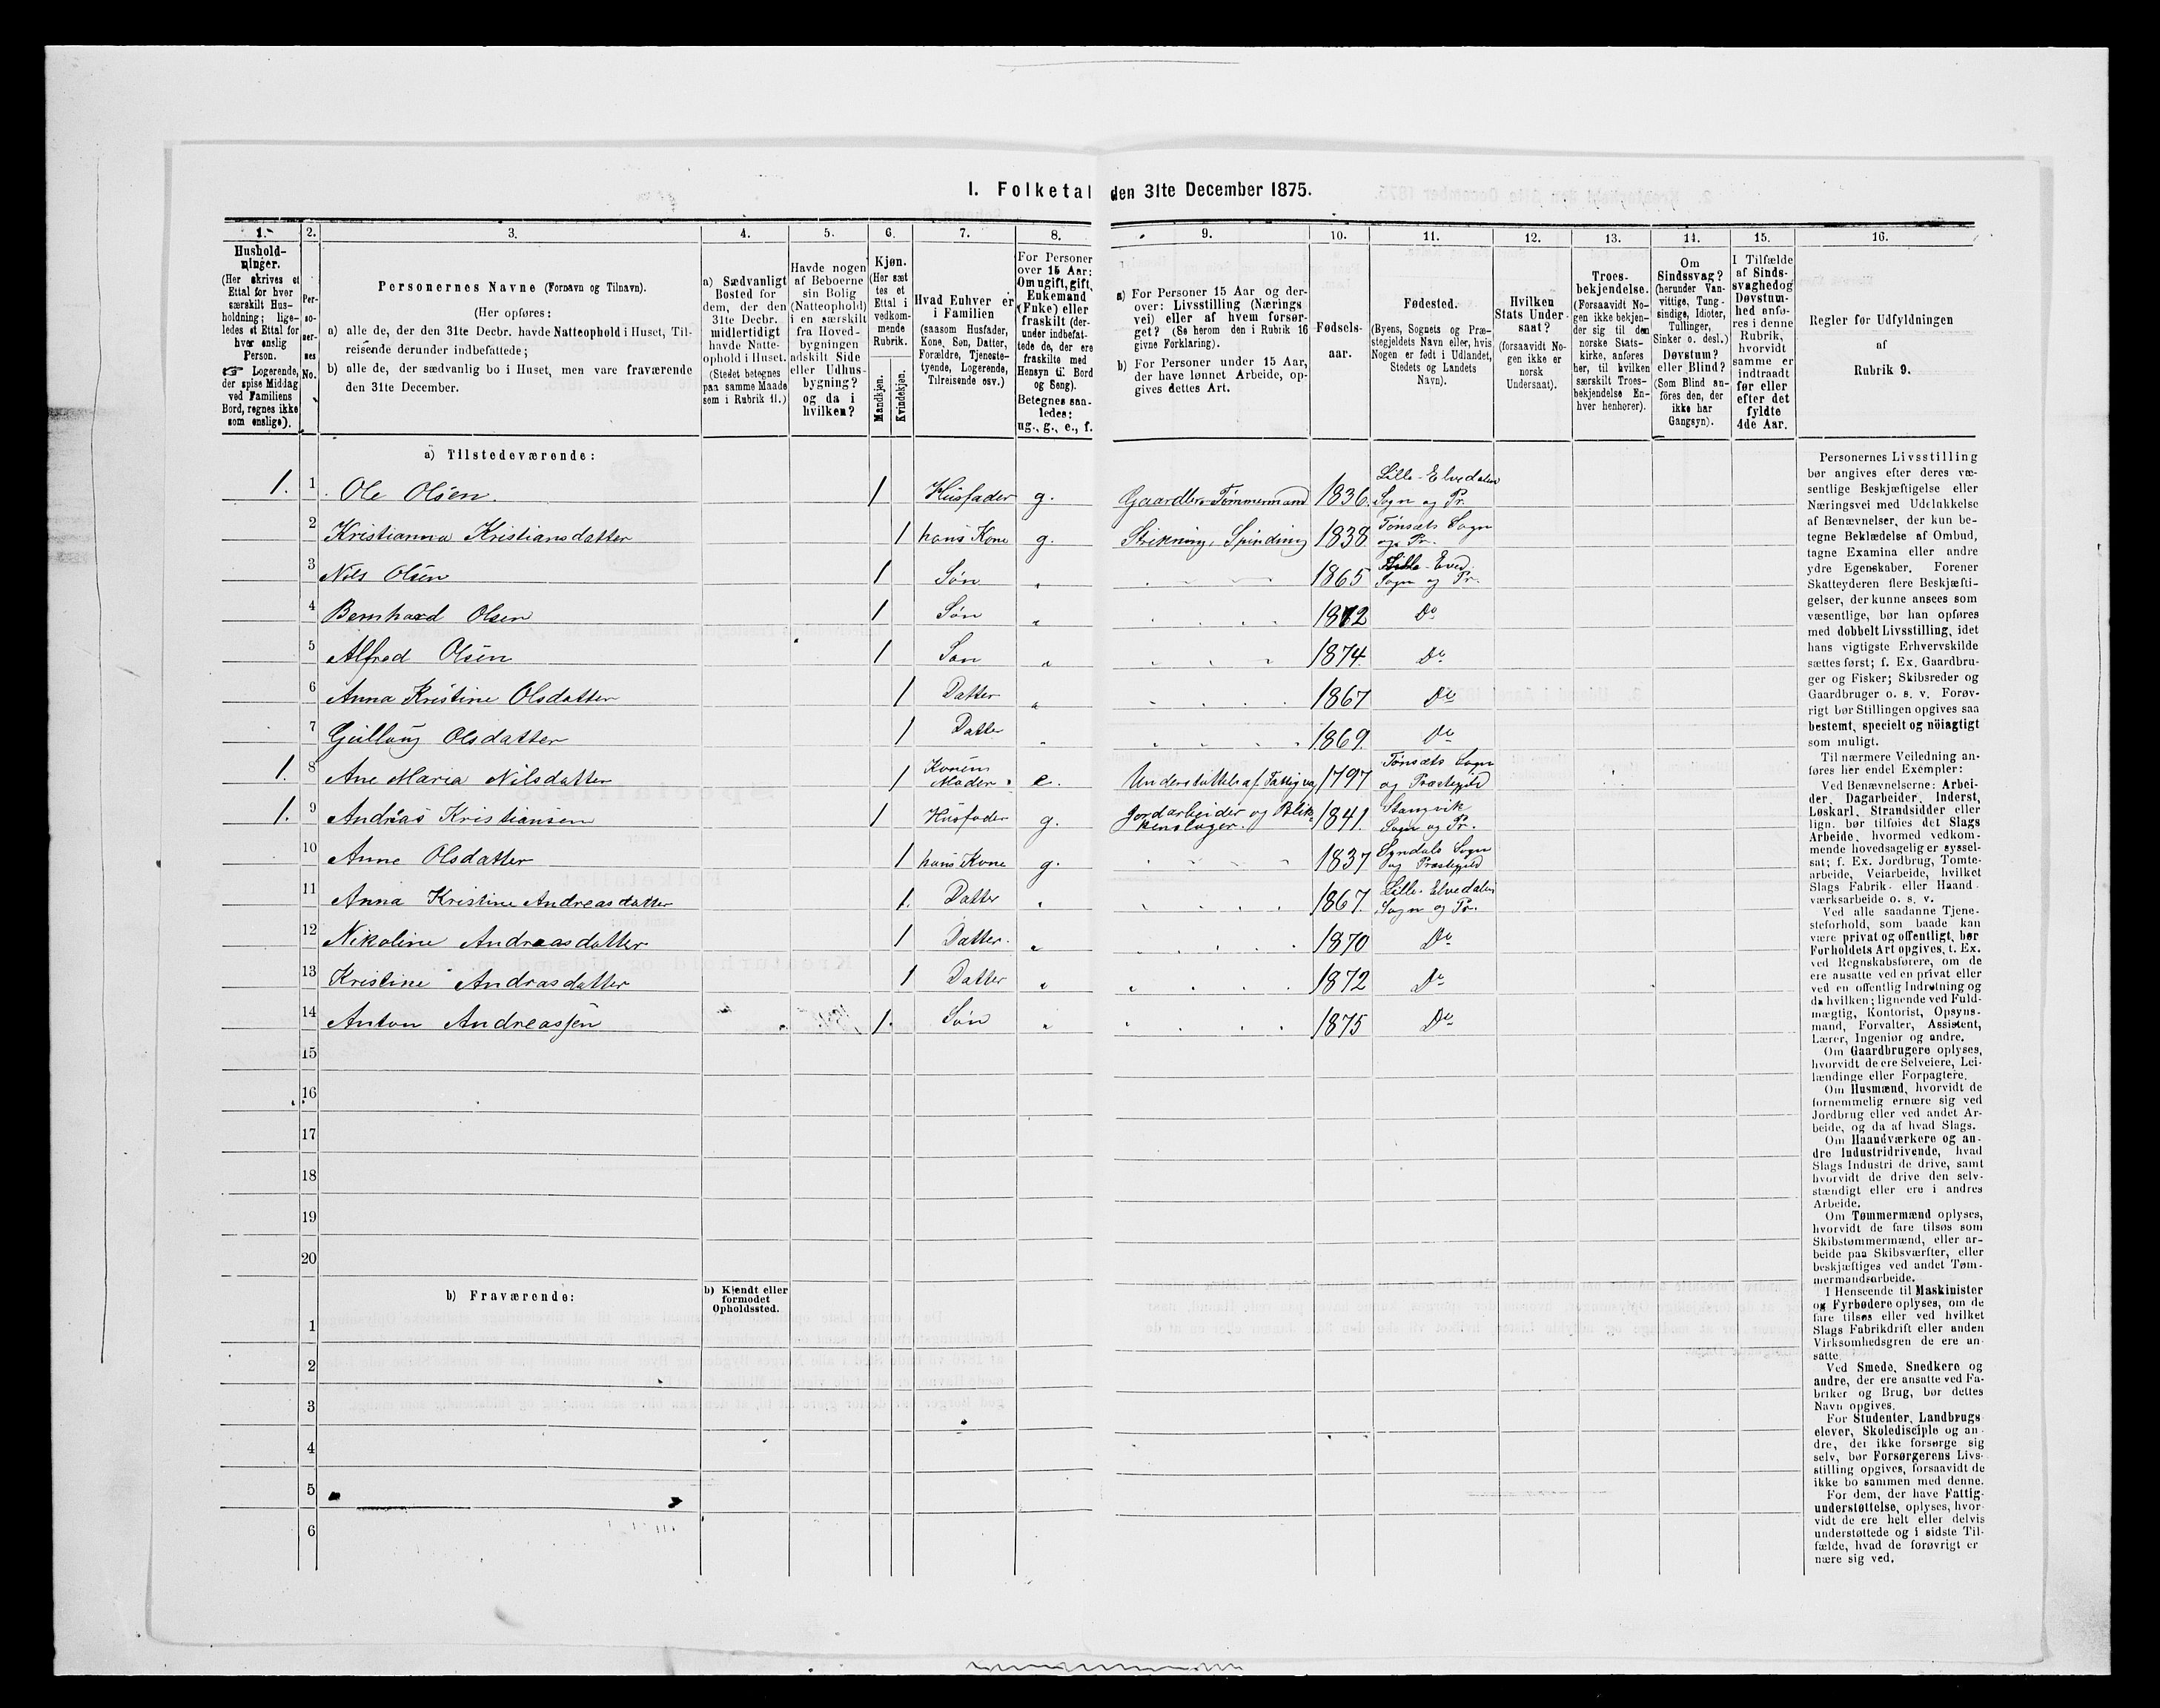 I. Folketal den 31te December 1875.
1. 2. 3. 4. 5. 6. 7. 8. 9. 10. 11. 12. 13. 14. 15. 16.
Hushold-
ninger.
(Her skrives et
Ettal for hver
særskilt Hus-
holdning; lige-
ledes et Ettal for
hver enslig
Person.
☞ Logerende,
der spise Middag
ved Familiens
Bord, regnes ikke
som enslige).
Per-
so-
ner-
nes
No.
Personernes Navne (Fornavn og Tilnavn).
(Her opføres:
a) alle de, der den 31te Decbr. havde Natteophold i Huset, Til-
reisende derunder indbefattede;
b) alle de, der sædvanlig bo i Huset, men vare fraværende
den 31te December.
a) Sædvanligt
Bosted for
dem, der den
31te Decbr.
midlertidigt
havde Natte-
ophold i Huset.
(Stedet betegnes
paa samme Maade
som i Rubrik 11.)
Havde nogen
af Beboerne
sin Bolig
(Natteophold)
i en særskilt
fra Hoved-
bygningen
adskilt Side
eller Udhus-
bygning?
og da i
hvilken?
Kjøn.
(Her sæt
tes et
Ettal i
vedkom-
mende
Rubrik.
Mandkjøn.
Kvindekjøn.
Hvad Enhver er
i Familien
(saasom Husfader,
Kone, Søn, Datter,
Forældre, Tjeneste-
tyende, Logerende,
Tilreisende osv.)
For Personer
over 15 Aar:
Om ugift, gift,
Enkemand
(Enke) eller
fraskilt (der-
under indbefat-
tede de, der ere
fraskilte med
Hensyn til Bord
og Seng).
Betegnes saa-
ledes:
ug., g., e., f.
a) For Personer 15 Aar og der-
over: Livsstilling (Nærings
vei) eller af hvem forsør-
get? (Se herom den i Rubrik 16
givne Forklaring).
b) For Personer under 15 Aar,
der have lønnet Arbeide, op-
gives dettes Art.
Fødsels-
aar.
Fødested.
(Byens, Sognets og Præ-
stegjeldets Navn eller, hvis
Nogen er født i Udlandet,
Stedets og Landets
Navn).
Hvilken
Stats Under-
saat?
(forsaavidt No-
gen ikke er
norsk
Undersaat).
Troes-
bekjendelse.
(Forsaavidt No-
gen ikke bekjen-
der sig til den
norske Stats-
kirke, anføres
her, til hvilken
særskilt Troes-
bekjendelse En-
hver henhører).
Om
Sindssvag?
(herunder Van-
vittige, Tung-
sindige, Idioter,
Tullinger,
Sinker o. desl.)
Døvstum?
eller Blind?
(Som Blind an-
føres den, der
ikke har
Gangsyn).
I Tilfælde
af Sinds-
svaghed og
Døvstum-
hed anfø-
res i denne
Rubrik,
hvorvidt
samme er
indtraadt
før eller
efter det
fyldte
4de Aar.
Regler for Udfyldningen
af
Rubrik 9.
a) Tilstedeværende:
1. 1 Ole Olsen. 1 Husfader g. Gaardbr. Tømmermand 1836. Lille-Elvedalen Sogn og Pr.
2 Kristianna Kristiansdatter 1 hans Kone g. Strikning, Spinding 1838 Tønsets Sogn og Pr.
3 Nils Olsen 1 Søn " 1865 Lille-Elved. Sogn og Pr.
4 Bernhard Olsen 1 Søn " 1872 Do
5 Alfred Olsen 1 Søn " 1874. Do
6 Anna Kristine Olsdatter 1 Datter " 1867 Do
7 Gulloug Olsdatter 1 Datter " 1869. Do
1. 8 Ane Maria Nilsdatter 1 Konens Moder e. Understøttes af Fattigv. 1797 Tønsets Sogn og Præstegjeld
1. 9 Andras Kristiansen 1 Husfader g. Jordarbeider og Blikkenslager. 1841. Stangvik Sogn og Pr.
10 Anne Olsdatter 1 hans Kone g. 1837 Sogn og Præstegjeld
11 Anna Kristine Andreasdatter 1. Datter " 1867. Lille-Elvedalen Sogn og Pr.
12 Nikoline Andreasdatter 1 Datter. " 1870 Do
13 Kristine Andrasdatter 1 Datter " 1872 Do
14 Anton Andreassen 1. Søn " 1875 Do
15
16
17
18
19
20
b) Fraværende:
b) Kjendt eller
formodet
Opholdssted.
1
2
3
4
5
6
Personernes Livsstilling
bør angives efter deres væ-
sentlige Beskjæftigelse eller
Næringsvei med Udelukkelse
af Benævnelser, der kun be-
tegne Beklædelse af Ombud,
tagne Examina eller andre
ydre Egenskaber. Forener
Skatteyderen flere Beskjæfti-
gelser, der kunne ansees som
væsentlige, bør han opføres
med dobbelt Livsstilling, idet
hans vigtigste Erhvervskilde
sættes først; f. Ex. Gaardbru-
ger og Fisker; Skibsreder og
Gaardbruger o. s. v. Forøv-
rigt bør Stillingen opgives saa
bestemt, specielt og nöiagtigt
som muligt.
Til nærmere Veiledning an-
føres her endel Exempler:
Ved Benævnelserne: Arbei-
der, Dagarbeider, Inderst,
Løskarl, Strandsidder eller
lign. bør tilføies det Slags
Arbeide, hvormed vedkom-
mende hovedsagelig er syssel-
sat; f. Ex. Jordbrug, Tomte-
arbeide, Veiarbeide, hvilket
Slags Fabrik- eller Haand-
værksarbeide o. s. v.
Ved alle saadanne Tjene-
steforhold, som baade kan
være privat og offentligt, bør
Forholdets Art opgives, t. Ex.
ved Regnskabsførere, om de
ere ansatte ved en privat eller
ved en offentlig Indretning og
da hvilken; lignende ved Fuld-
mægtig, Kontorist, Opsyns-
mand, Forvalter, Assistent,
Lærer, Ingeniør og andre.
Om Gaardbrugere oplyses,
hvorvidt de ere Selveiere, Lei-
lændinge eller Forpagtere.
Om Husmænd, hvorvidt de
fornemmelig ernære sig ved
Jordbrug eller ved andet Ar-
beide, og da af hvad Slags.
Om Haandværkere og an-
dre Industridrivende, hvad
Slags Industri de drive, samt
hvorvidt de drive den selv-
stændigt eller ere i andres
Arbeide.
Om Tømmermænd oplyses,
hvorvidt de fare tilsøs som
Skibstømmermænd, eller ar-
beide paa Skibsværfter, eller
beskjæftiges ved andet Tøm-
mermandsarbeide.
I Henseende til Maskinister
og Fyrbødere oplyses, om de
fare tilsøs eller ved hvilket
Slags Fabrikdrift eller anden
Virksomhedsgren de ere an-
satte.
Ved Smede, Snedkere og
andre, der ere ansatte ved Fa-
briker og Brug, bør dettes
Navn opgives.
For Studenter, Landbrugs-
elever, Skoledisciple og an-
dre, der ikke forsørge sig
selv, bør Forsørgerens Livs-
stilling opgives, forsaavidt de
ikke bo sammen med denne.
For dem, der have Fattig-
understøttelse, oplyses, hvor-
vidt de ere helt eller delvis
understøttede og i sidste Til-
fælde, hvad de forøvrigt er-
nære sig ved.